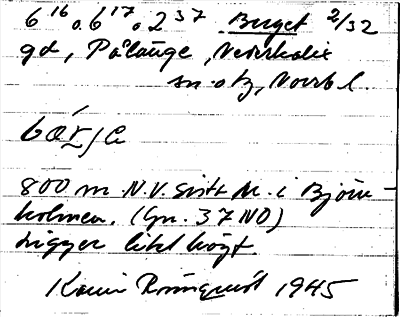 6¹⁶ o. 6¹⁷ o. 2³⁷ Berget 2/32
gd, Pålänge, Nederkalix
sn. o tg, Norrb l.
800 m N.V. sista M. i Björn-
holmen. (Gn. 37 NO)
Ligger likl högt.
Karin Rönnquist 1945